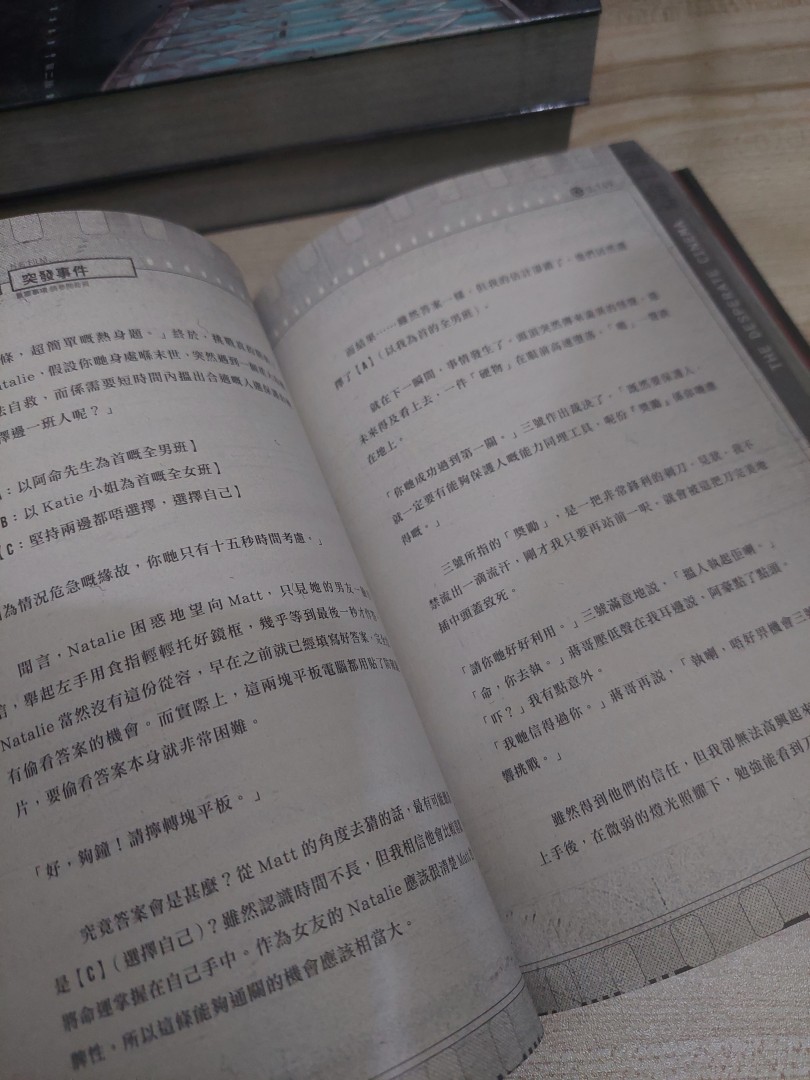 突發事件
條，超簡單嘅熱身題。」終於，
atalie，假設你哋身處喺末世，突然遇到一
法自救，而係需要短時間內搵出合適嘅人選
擇邊一班人呢？」
：以阿命先生為首嘅全男班】
B：以 Katie 小姐為首嘅全女班】
【C：堅持兩邊都唔選擇，選擇自己】
因為情況危急嘅緣故，你哋只有十五秒時間考慮。」
聞言，Natalie 困惑地望向 Matt，只見她的男友一
信，舉起左手用食指輕輕托好鏡框，幾乎等到最後一秒才作
Natalie 當然沒有這份從容，早在之前就已經填寫好答案，完全
有偷看答案的機會。而實際上，這兩塊平板電腦都用貼了防窺
片，要偷看答案本身就非常困難。
「好，夠鐘！請擰轉塊平板。」
究竟答案會是甚麼？從 Matt 的角度去猜的話，最有可能
是【C】（選擇自己）？雖然認識時間不長，但我相信他會比較
將命運掌握在自己手中。作為女友的 Natalie 應該很清楚 Matt
脾性，所以這條能夠通關的機會應該相當大。
THE DESPERATE CINEMA
而結果……雖然答案一樣，但我的估計卻錯了，他們居然選
擇了【A】（以我為首的全男班）。
就在下一瞬間，事情發生了，頭頂突然傳來
未來得及看上去，一件「硬物」在眼前高速墮落，「噹」一聲
在地上。
「你哋成功過到第一關。」三號作出裁決了，「既然要保護人，
就一定要有能夠保護人嘅能力同埋工具，呢份『獎勵』係你哋應
得嘅。」
三號所指的「獎勵」，是一把非常鋒利的剃刀。見狀，我不
禁流出一滴流汗，剛才我只要再站前一呎，就會被這把刀完美地
插中頭蓋致死。
「請你哋好好利用。」三號滿意地說，「搵人執起佢喇。」
「命，你去執。」蔣哥壓低聲在我耳邊說，阿豪點了點頭。
「吓？」我有點意外。
「我哋信得過你。」蔣哥再說，「執喇，唔好畀機會三
響挑戰。」
雖然得到他們的信任，但我卻無法高興起來
上手後，在微弱的燈光照耀下，勉強能看到刀